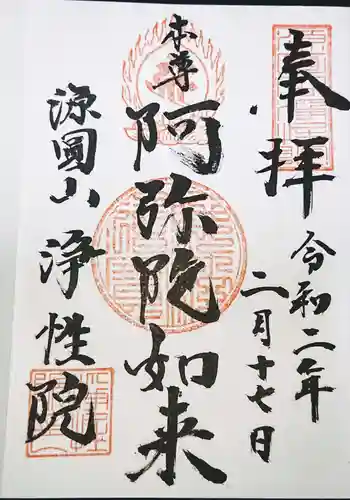 奉拝
令和二年
二月十七日
本尊
阿弥陀如来
源圓山
浄性院